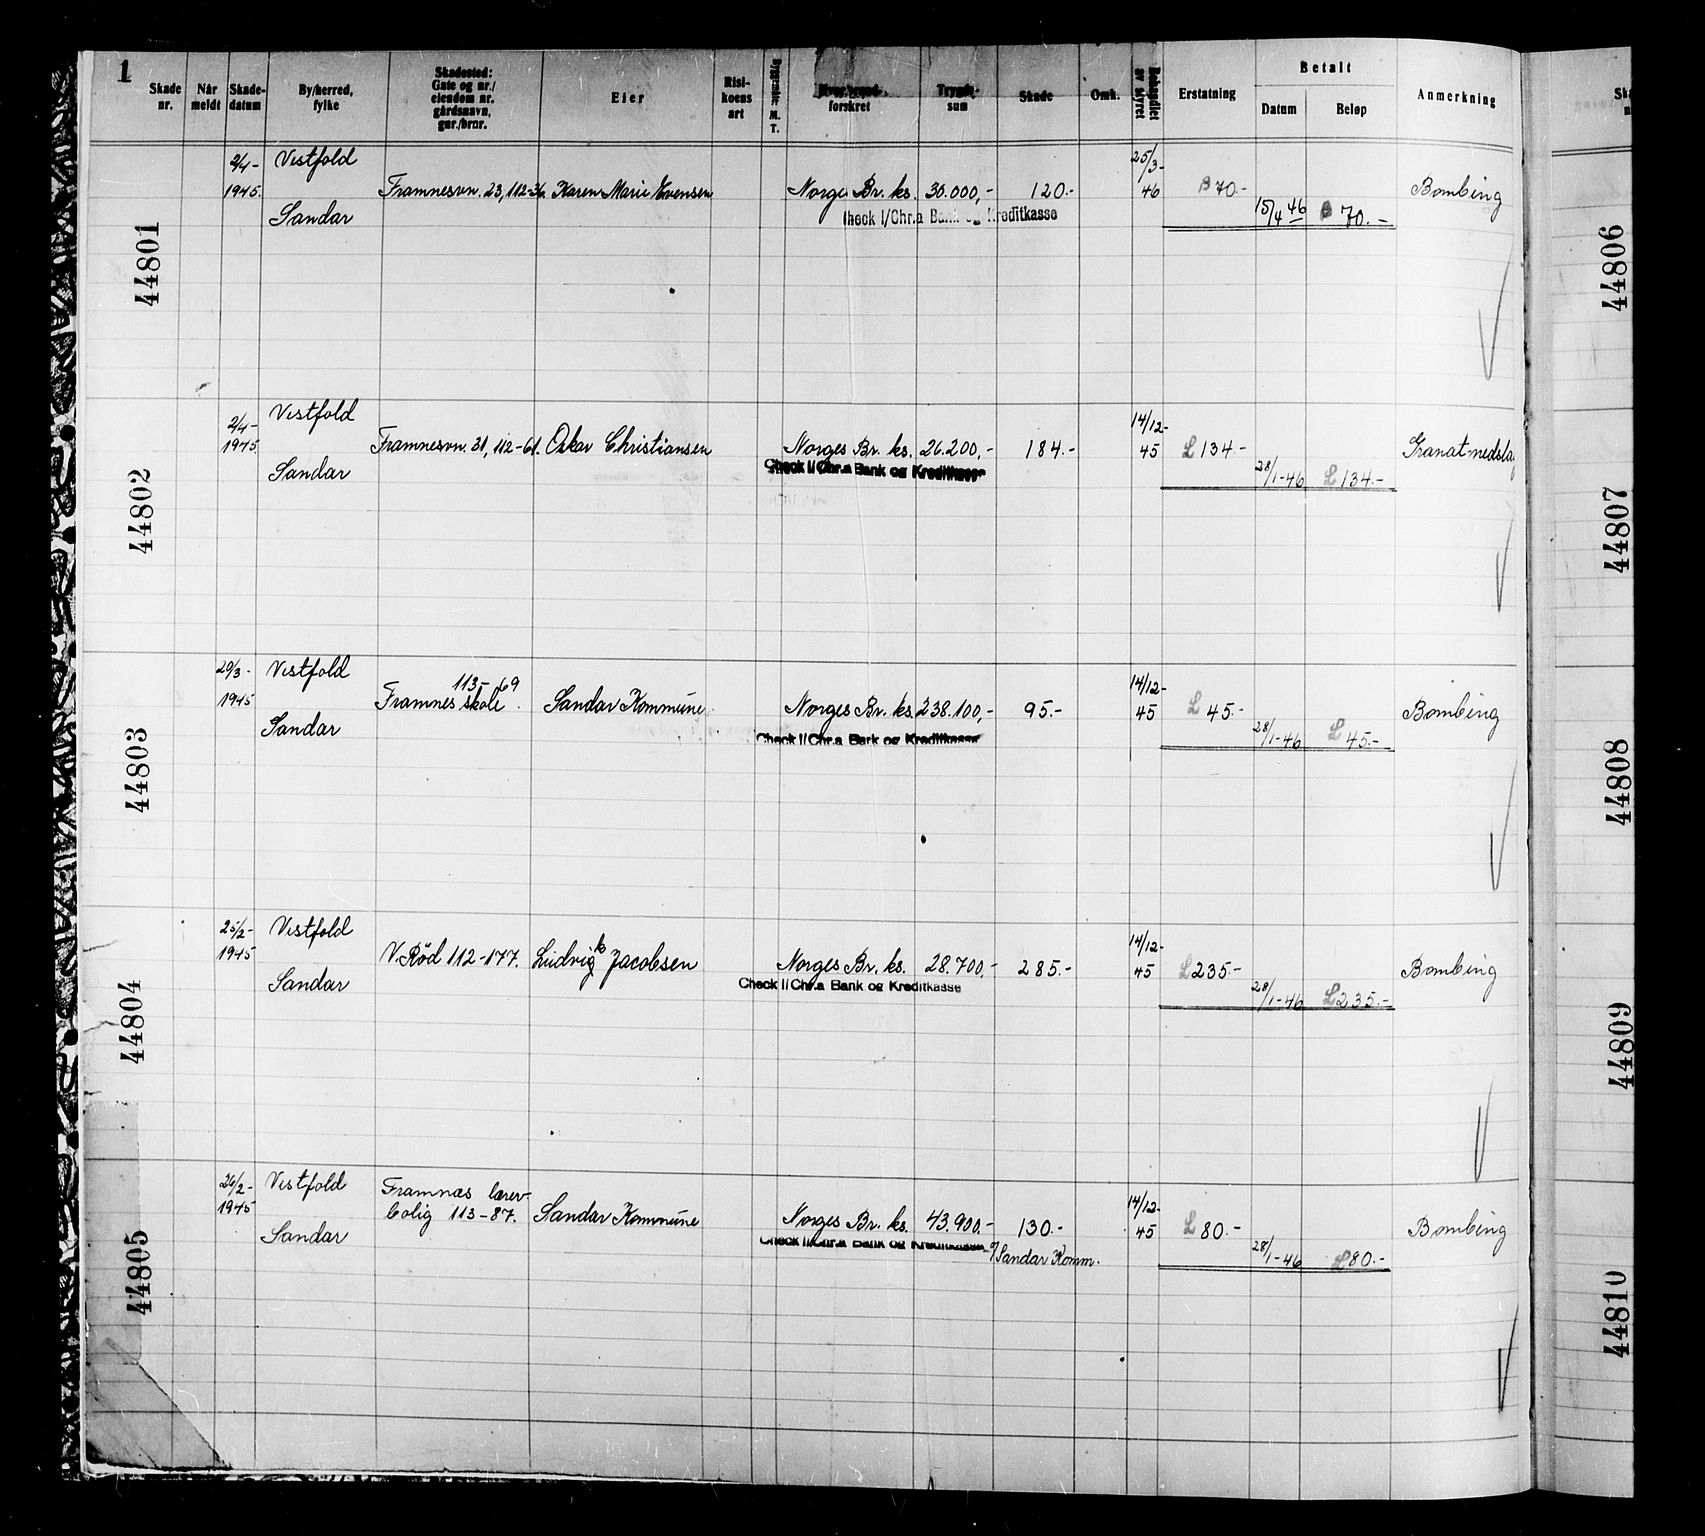 1
Skade nr.
Når meldt
Skade-datum
By/herred, fylke
Skadested: Gate og nr./ eiendom nr. gårdsnavn, gnr./brnr.
Eier
Risi-koens art
M. T.
forskret
Trygde-sum
Skade
Omk.
Behandlet av styret
Erstatning
Betalt
Datum
Beløp
Anmerkning
44801
2/4-1945.
Vestfold
Sandar
Framnesvn. 23, 112-36.
Karen Marie Evensen
Norges Br. ks.
30.000,-
120.-
25/3-46
B 70.-
Bombing
Check I/Chr.a Bank og Kreditkasse
15/4 46
B 70.-
44802
2/4-1945.
Vestfold
Sandar
Framnesvn. 31, 112-61.
Oskar Christiansen
Norges Br. ks.
26.200,-
184.-
14/12-45
L 134.-
Granat-nedslag
Check I/Chr.a Bank og Kreditkasse
28/1-46
L 134.-
44803
29/3-1945
Vestfold
Sandar
113-69
Framnes skole.
Sandar Kommune
Norges Br. ks.
238.100,-
95.-
14/12-45
L 45.-
Bombing
Check I/Chr.a Bank og Kreditkasse
28/1-46
L 45.-
44804
25/2-1945
Vestfold
Sandar
V. Rød 112-177.
Ludvig Jacobsen
Norges Br. ks.
28.700.-
285.-
14/12-45
L 235.-
Bombing
Check I/Chr.a Bank og Kreditkasse
28/1-46
L 235.-
44805
26/2-1945
Vestfold
Sandar
Framnæs lærer-
bolig 113-87.
Sandar Kommune
Norges Br. ks.
43.900.-
130.-
14/12-45
L 80.-
Bombing
Check I/Chr.a Bank og Kreditkasse
Sandar Komm.
28/1-46
L 80.-
44806
44807
44808
44809
44810